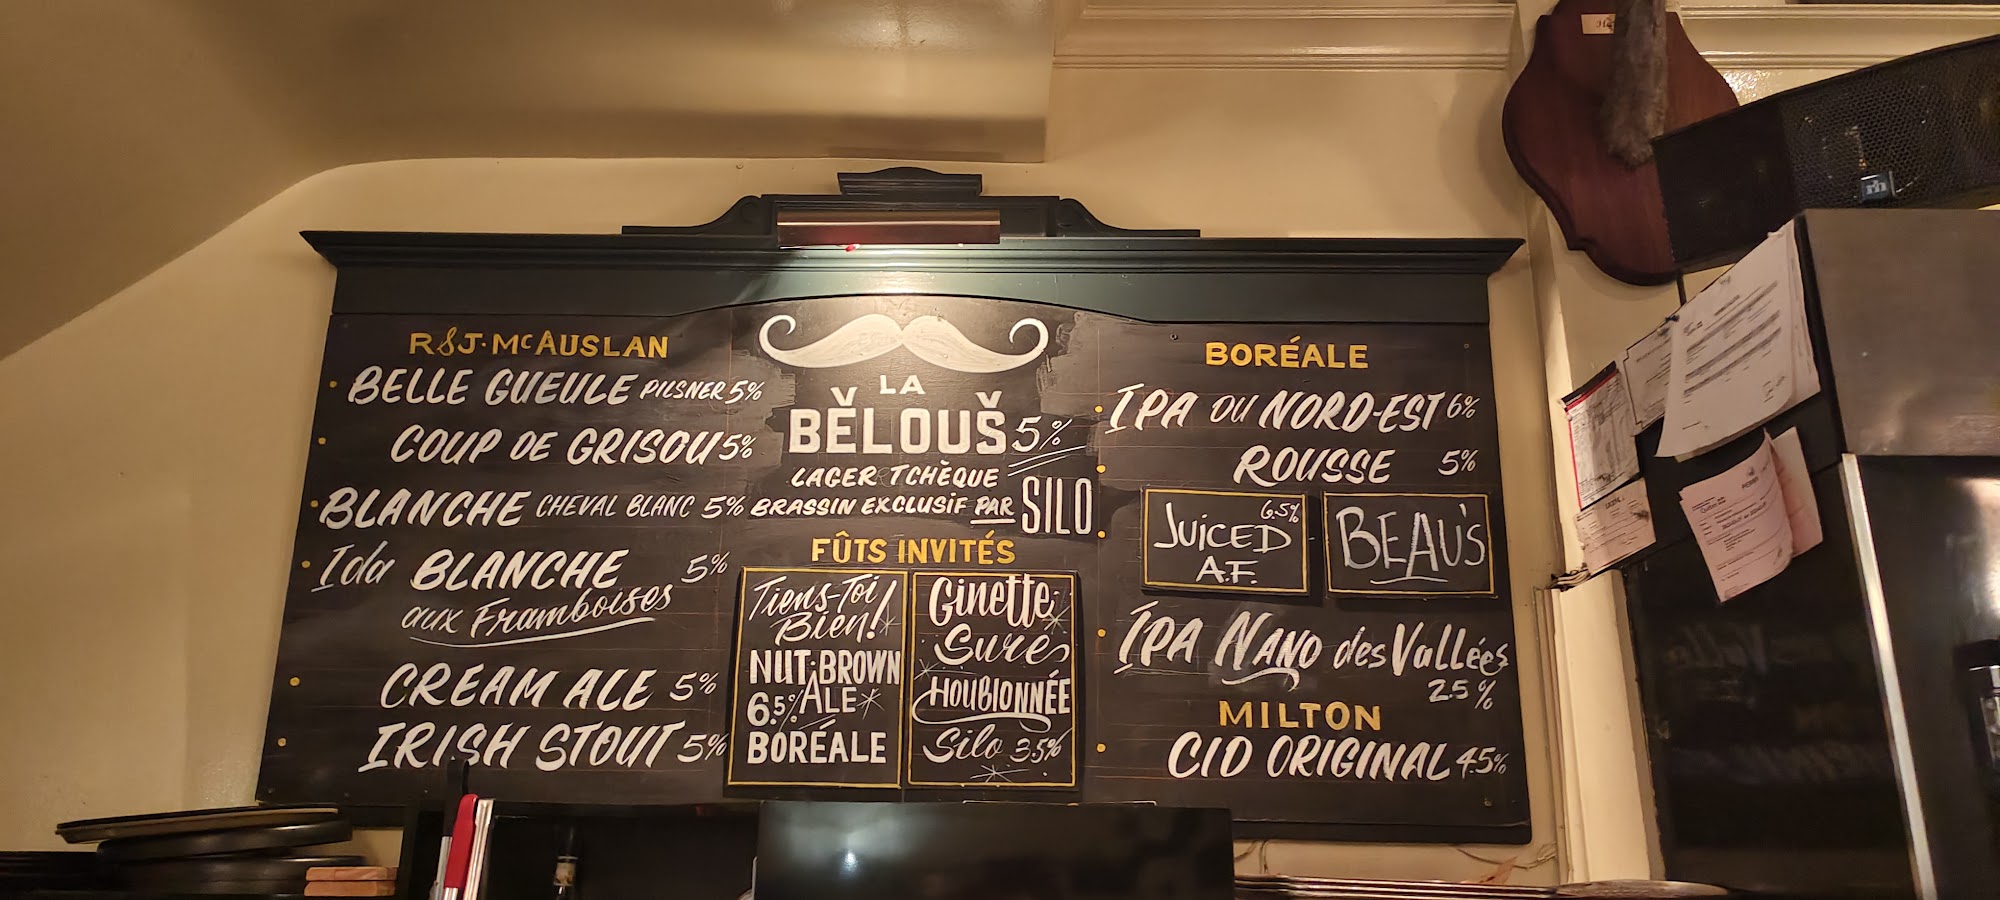 R&J. McAUSLAN
BELLE GUEULE PILSNER 5%
COUP DE GRISOU 5%
BLANCHE CHEVAL BLANC 5%
Ida BLANCHE 5%
aux Framboises
CREAM ALE 5%
IRISH STOUT 5%
LA
BĚLOUŠ 5%
LAGER TCHÈQUE
BRASSIN EXCLUSIF PAR SILO
FÛTS INVITÉS
Tiens-Toi
Bien!
NUT-BROWN
6.5% ALE
BORÉALE
Ginette
Sure
HOUBLONNÉE
Silo 3.5%
BORÉALE
IPA DU NORD-EST 6%
ROUSSE 5%
JUICED 6.5%
A.F.
BEAU'S
IPA NANO des Vallées
2.5%
MILTON
CID ORIGINAL 4.5%